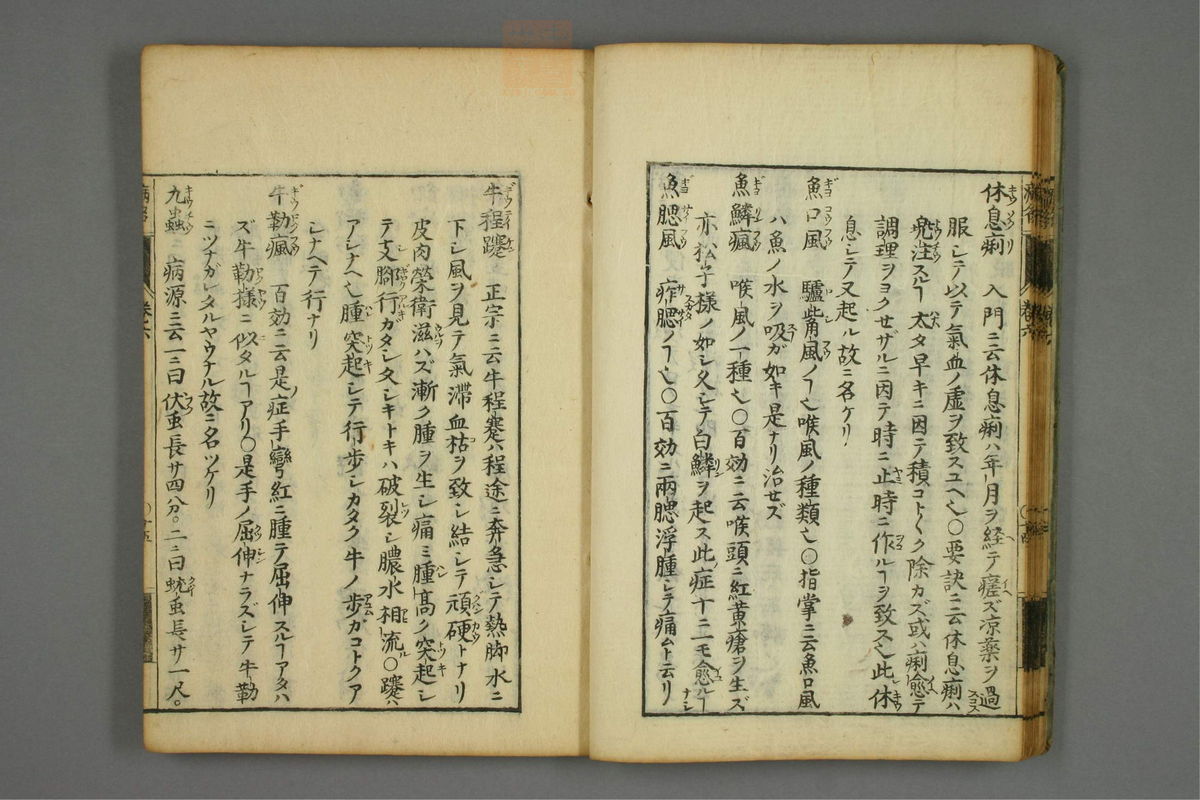 休息痢 入門ニ云休息痢ハ年月ヲ経テ瘥ズ凉藥ヲ過
服シテ以テ氣血ノ虚ヲ致スユヘ也〇要訣ニ云休息痢ハ
兠澁スルヿ太タ早キニ因テ積コトク除カズ或ハ痢愈テ
調理ヲヨクせザルニ因テ時ニ止時ニ作ルヿヲ致ス也此休
息シテ又起ル故ニ名ケリ
魚口風 驢觜風ノヿ也喉風ノ種類也〇指掌ニ云魚口風
ハ魚ノ水ヲ吸ガ如キ是ナリ治せズ
魚鱗瘋 喉風ノ一種也〇百効ニ云喉頭ニ紅黄瘡ヲ生ズ
亦松子様ノ如シ久シテ白鱗ヲ起ス此症十ニ一モ愈ルヿナシ
魚腮風 痄腮ノヿ也〇百効ニ兩腮浮腫シテ痛ムト云リ
牛程蹇 正宗ニ云牛程蹇ハ程途ニ奔急シテ熱脚水ニ
下シ風ヲ見テ氣滯血枯ヲ致シ結シテ頑硬トナリ
皮肉榮衛滋ハズ漸ク腫ヲ生シ痛ミ腫髙ク突起シ
テ支脚行ガタシ久シキトキハ破裂シ膿水相流〇蹇ハ
アシナヘ也腫突起シテ行歩シカタク牛ノ歩ガコトクア
シナヘテ行ナリ
牛勒瘋 百効ニ云是ノ症手彎紅ニ腫テ屈伸スルヿアタハ
ズ牛勒様ニ似タルヿアリ〇是手ノ屈伸ナラズシテ牛勒
ニツナガレタルヤウナル故ニ名ツケリ
九蟲 病源ニ云一ニ曰伏虫長サ四分。二ニ曰蚘虫長サ一尺。